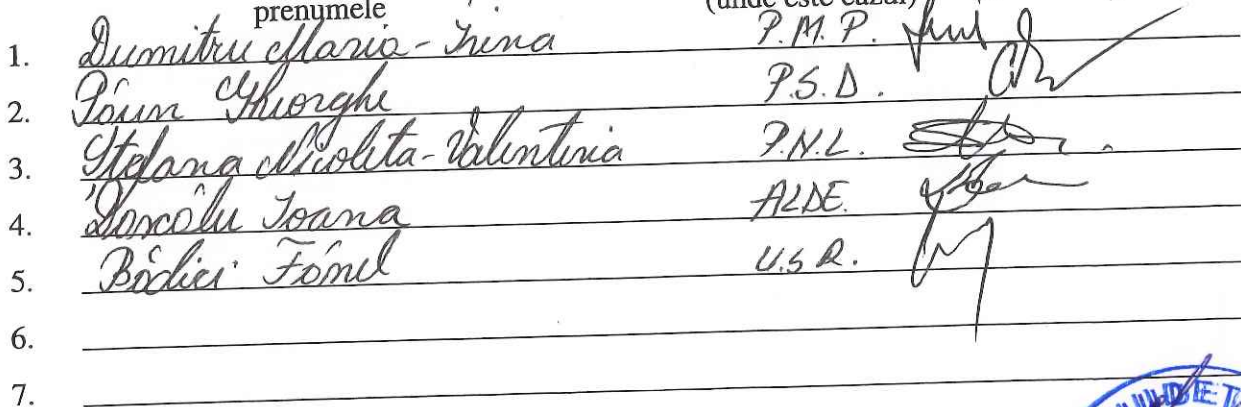 prenumele (unde este cazul)
1. Dumitru Maria-Irina P.M.P.
2. Păun Gheorghe P.S.D.
3. Ștefana Nicoleta-Valentina P.N.L.
4. Ioana ALDE.
5. U.S.R.
6.
7.
JUDEȚ